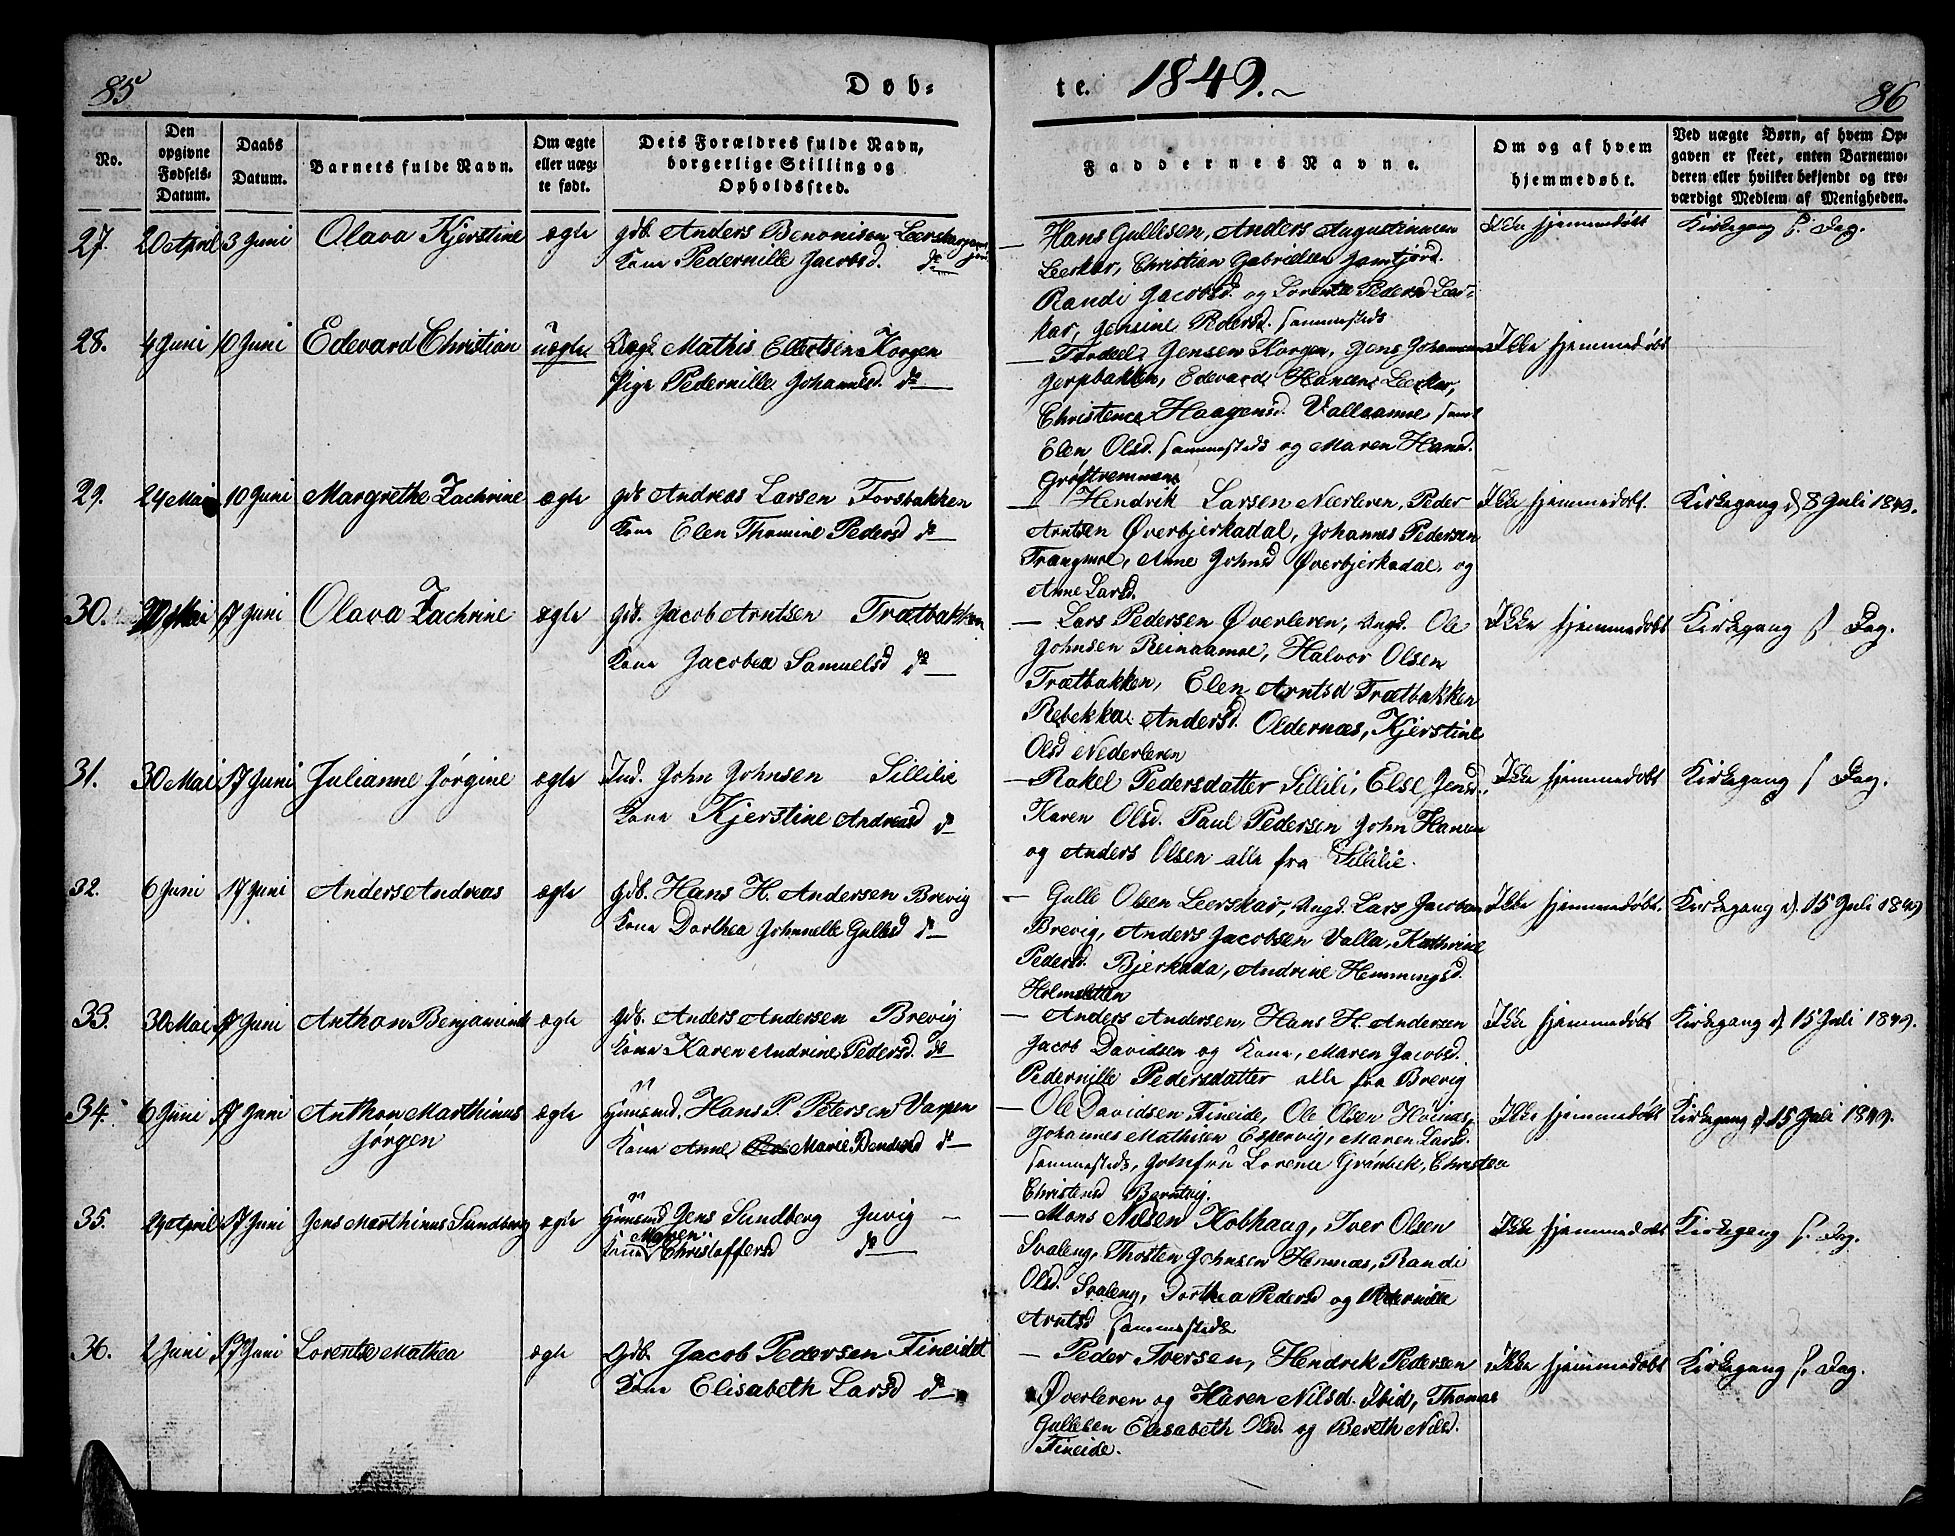 85
Døb-
No.
Den opgivne Fødsels-Datum.
Daabs Datum.
Barnets fulde Navn.
Om ægte eller uæg-te født.
Dets Forældres fulde Navn, borgerlige Stilling og Opholdssted.
27. 20 April 3 Juni Olava Kjerstine ægte Gdb. Anders Benonisen Leerskar
Kone Pedernille Jacobsd. do
28. 4 Juni 10 Juni Edevard Christian uægte Mathis Ellertsen Korgen
Pige Pedernille Johannsd. do
29. 24 Mai 10 Juni Margrethe Zachrine ægte Gdb Andreas Larsen Forsbakken
Kone Elen Thomine Pedersd do
30. Mai 17 Juni Olava Zachrine ægte Gdb. Jacob Arntsen Trætbakken
Kone Jacobea Samuelsd do
31. 30 Mai 17 Juni Julianne Jørgine ægte Ind. John Johnsen Sillilie
Kone Kjerstine Andreasd do
32. 6 Juni 17 Juni Anders Andreas ægte Gdb. Hans H. Andersen Brevig
Kone Dorthea Johnnelle Gullesd do
33. 30 Mai 17 Juni Anthon Benjamin ægte Gdb. Anders Andersen Brevig
Kone Karen Andrine Pedersd. do
34. 6 Juni 17 Juni Anthon Marthinus ægte Huusmd. Hans P. Petersen Varpen
Jørgen Kone Anne Marie Bendixd do
35. 24 April 17 Juni Jens Marthinus Sundberg ægte Huusmd Jens Sundberg Juvig
Maren
Kone Christoffersd do
36. 2 Juni 17 Juni Lorentse Mathea ægte Gdb. Jacob Pedersen Fineidet
Kone Elisabeth Larsd do
te. 1849.
86
Faddernes Navne.
Om og af hvem hjemmedøbt.
Ved uægte Børn, af hvem Op-
gaven er skeet, enten Barnemo-
deren eller hvilket bekjendt og tro-
værdigt Medlem af Menigheden.
— Hans Gullesen, Anders Augustinusen Ikke hjemmedøbt Kirkegang s. Dag.
Leerskar, Christian Gabrielsen Jamtjord.
Randi Jacobsd. og Lorentse Pedersd Leer-
kar, Jensine Pedersd. sammesteds
— Jensen Korgen, Jens Johannsen Ikke hjemmedøbt
Jerpbakken, Edevard Hansen Leerkar,
Christence Haagensd. Vallaamoe samt
Elen Olsd. sammesteds og Maren Hansd.
Grøftremmen
— Hendrik Larsen Nerleren, Peder Ikke hjemmedøbt. Kirkegang d 8 Juli 1849.
Arntsen Øverbjerkadal, Johannes Pedersen
Trangmoe, Anne Johnsd Øverbjerkadal, og
Anne Larsd.
— Lars Pedersen Øverleren, Ungd. Ole Ikke hjemmedøbt Kirkegang s Dag.
Johnsen Reinaamoe, Halvor Olsen
Trætbakken, Elen Arntsd Trætbakken
Rebekka Andersd. Oldernæs, Kjerstine
Olsd Nederleren
— Rakel Pedersdatter Sillili, Else Jensd., Ikke hjemmedøbt Kirkegang s Dag.
Karen Olsd. Paul Pedersen John Hansen
og Anders Olsen alle fra Sillilie.
— Gulle Olsen Leerskar, Ungd. Lars Jacobsen Ikke hjemmedøbt. Kirkegang d. 15 Juli 1849
Brevig, Anders Jacobsen Valla, Kathrine
Pedersd. Bjerkada, Andrine Hemmingsd.
Holmsletten
— Anders Andersen, Hans H. Andersen Ikke hjemmedøbt Kirkegang d. 15 Juli 1849.
Jacob Davidsen og Kone, Maren Jacobsd.
Pedernille Pedersdatter alle fra Brevig
— Ole Davidsen Fineide, Ole Olsen Høinæs, Ikke hjemmedøbt Kirkegang d 15 Juli 1849.
Johannes Mathisen Espervig, Maren Larsd.
sammesteds, Jomfru Lorence Grønbek, Christea
Christensd Barntvig.
— Mons Nilsen Kobhaug, Iver Olsen Ikke hjemmedøbt Kirkegang s. Dag.
Svaleng, Thosten Johnsen Hemnæs, Randi
Olsd. Svaleng, Dorthea Pedersd og Pedernille
Arntsd sammesteds
— Peder Iversen, Hendrik Pedersen Ikke hjemmedøbt Kirkegang s. Dag.
Øverleren og Karen Nilsd. Ibid, Thomas
Gullesen Elisabeth Olsd. og Bereth Nilsd.
Fineide.